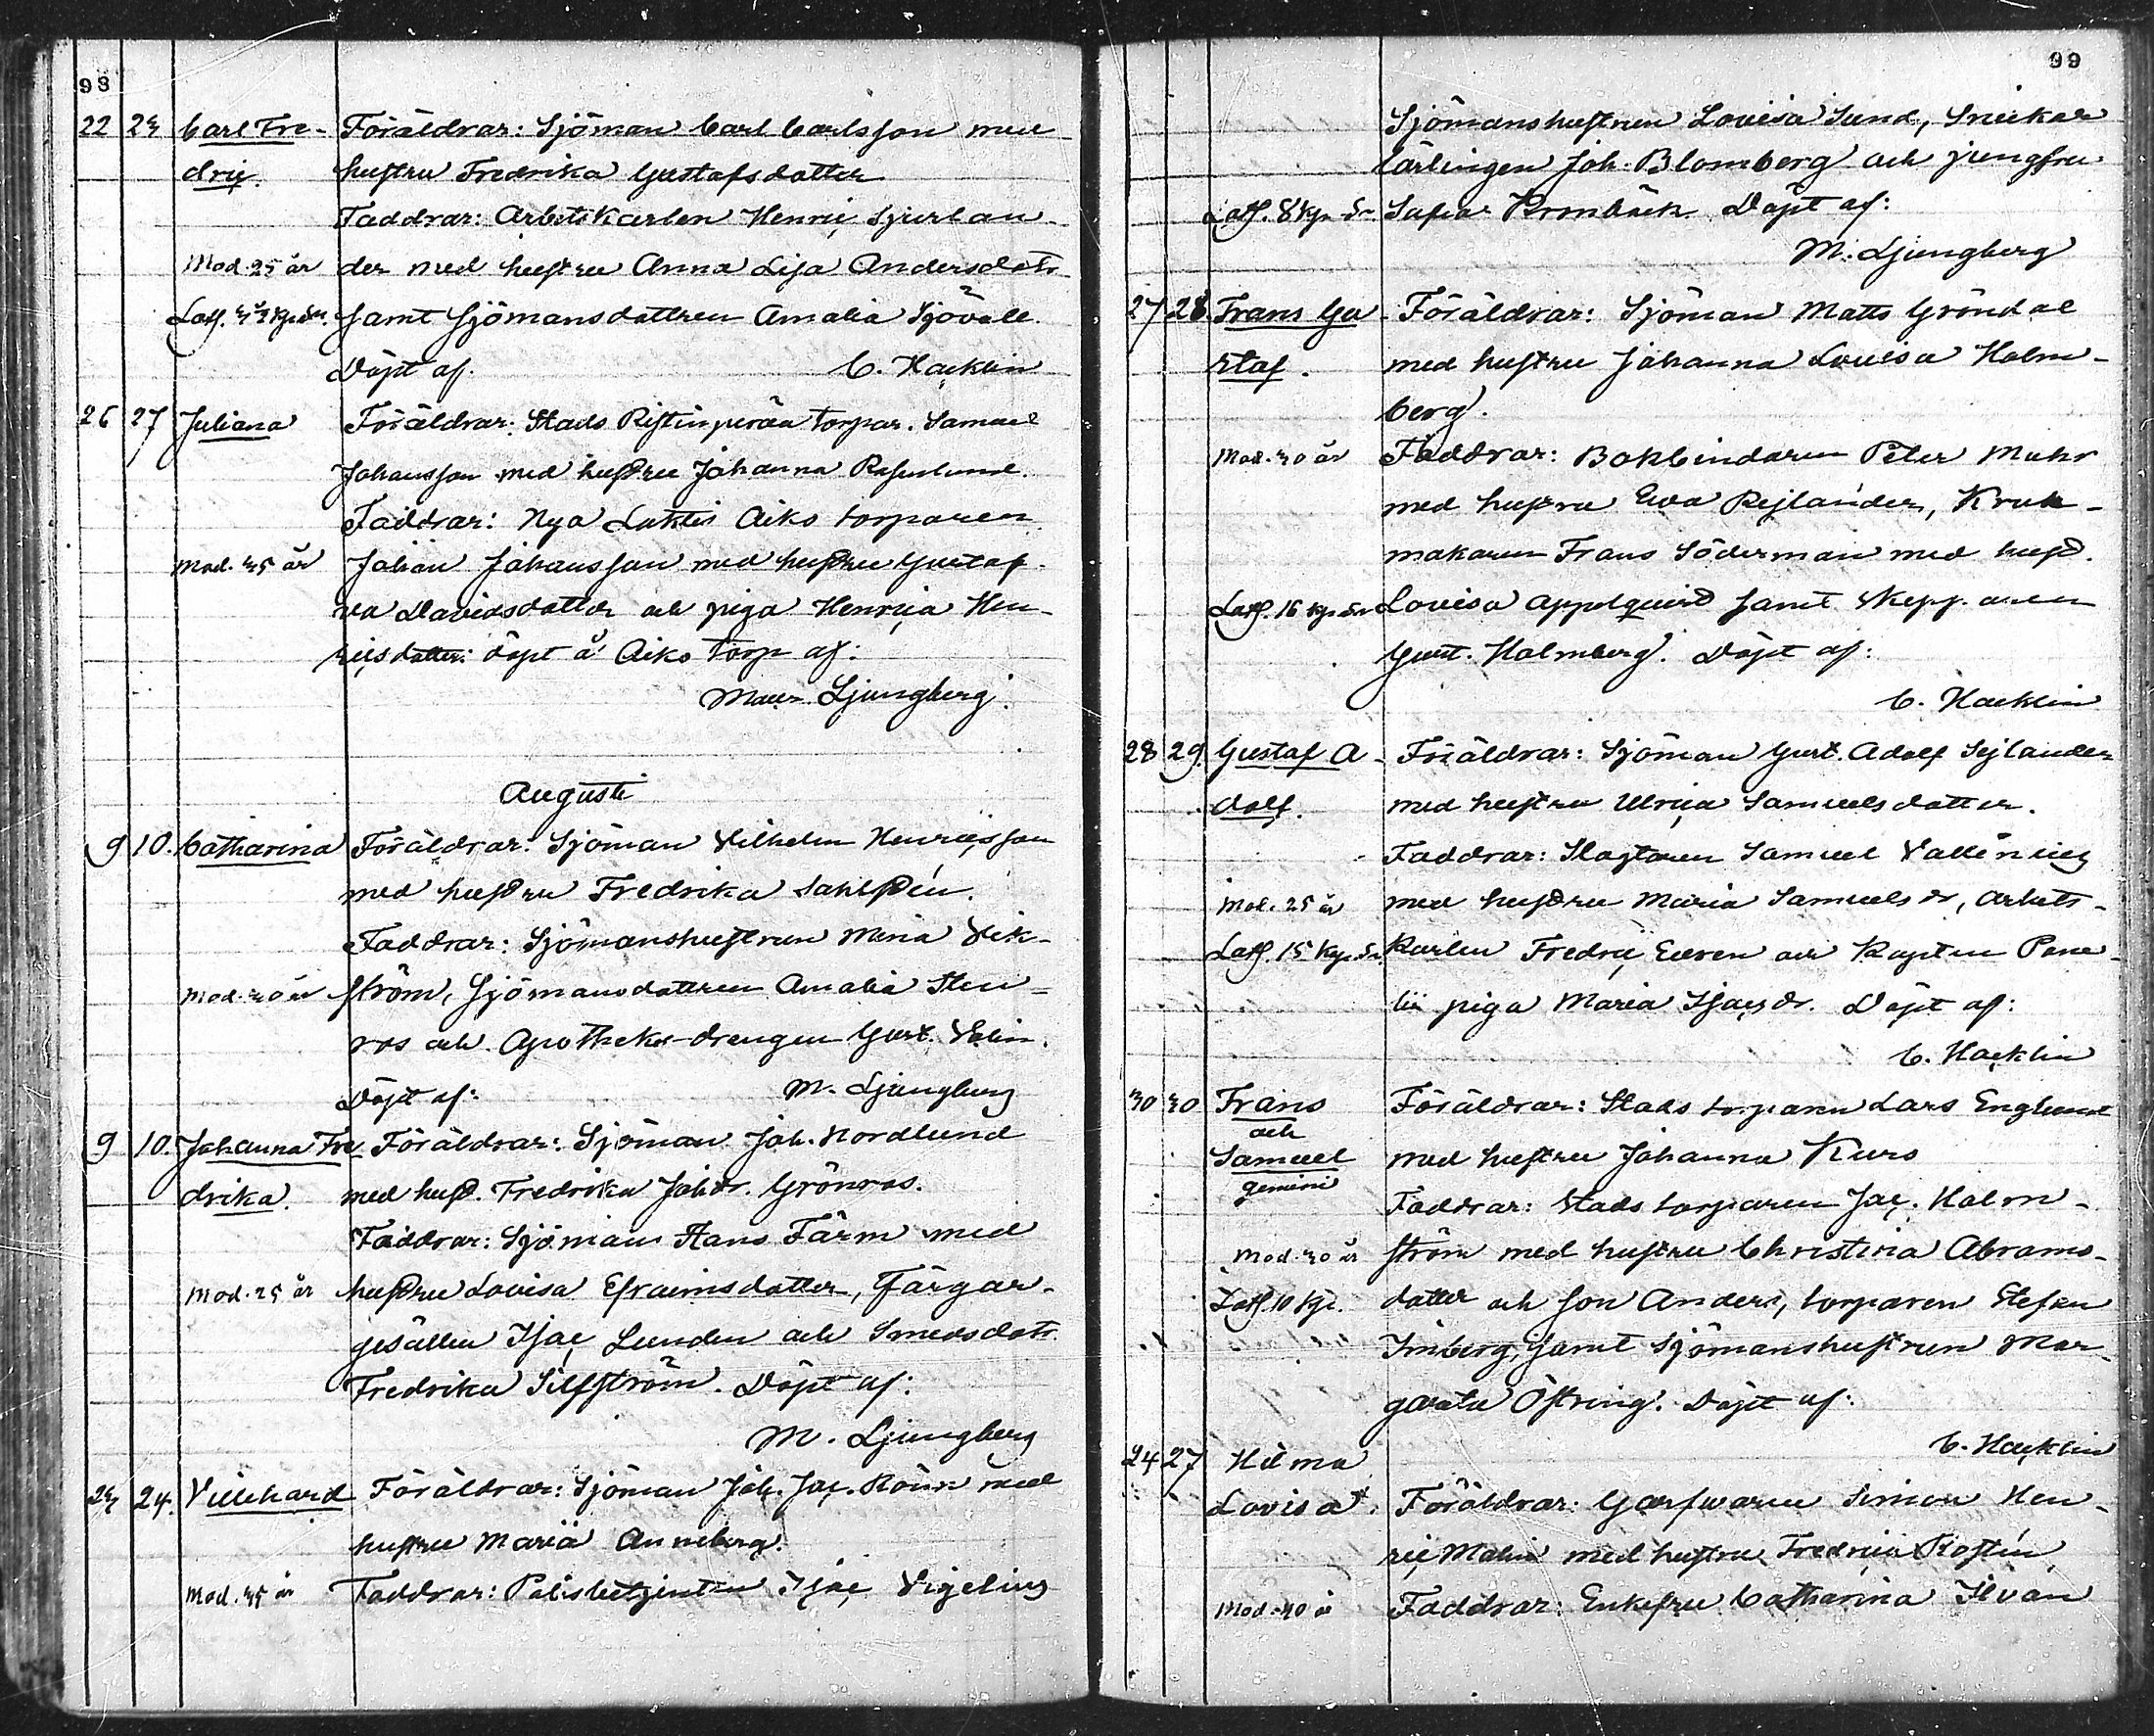 98
22 23 Carl Fre- Föräldrar: Sjöman Carl Carlsson med
dric. hustru Fredrika Gustafsdotter
Faddrar: Arbetskarlen Henric Sjurlan-
Mod. 25 år der med hustru Anna Lisa Andersdotr
samt Sjömansdottren Amalia Sjövall.
Döpt af. C. Hacklin
26 27 Juliana Föräldrar: Stads Ristinperää torpar. Samuel
Johansson med hustru Johanna Rosenlund.
Faddrar: Nya Luktis Aiko torparen
Mod. 35 år Johan Johansson med hustru Gustaf-
va Davidsdotter och piga Henrica Hen-
ricsdotter: döpt å Aiko torp af:
Maur. Ljungberg.
Augusti
9 10. Catharina Föräldrar: Sjöman Vilhelm Henricsson
med hustru Fredrika Sahlstén.
Faddrar: Sjömanshustrun Maria Vik-
Mod. 30 år ström, Sjömansdottren Amalia Sten=
ros och Apotheks-drengen Gust. Valin.
Döpt af: M. Ljungberg
9 10. Johanna Fre- Föräldrar: Sjöman Joh. Nordlund
drika. med hust. Fredrika Johdr. Grönros.
Faddrar: Sjöman Hans Färm med
Mod. 25 år hustru Lovisa Efraimsdotter, Färgar-
gesällen Isac Lunden och Smedsdotr
Fredrika Silfström. Döpt af:
M. Ljungberg
23 24. Villehard Föräldrar: Sjöman Joh. Jac. Rönn med
hustru Maria Anneberg.
Mod. 35 år Faddrar: Polisbetjenten Isac Vigelius
99
Sjömanshustrun Lovisa Sund, Snickar
lärlingen Joh. Blomberg och jungfru
Latf. 8 kp. Sr. Sofia Brønbäck. Döpt af:
M. Ljungberg
27 28. Frans Gu- Föräldrar: Sjöman Matts Gröndal
staf. med hustru Johanna Lovisa Holm-
berg.
Mod. 30 år Faddrar: Bokbindaren Peter Muhr
med hustru Eva Rejlander, Kruk-
makaren Frans Söderman med hust.
Latf. 16 kp. Sr. Lovisa Appelqvist samt Skepp. aren
Gust. Holmberg. Döpt af:
C. Hacklin
28 29. Gustaf A- Föräldrar: Sjöman Gust. Adolf Sejlander
dolf. med hustru Ulrica Samuelsdotter.
Faddrar: Slagtaren Samuel Vallenius
Mod. 25 år med hustru Maria Samuelsdr, Arbets-
Latf. 15 kp. Sr. karlen Fredric Everen och Kapten Pane-
lii piga Maria Isacsdr. Döpt af:
C. Hacklin
30 30 Frans Föräldrar: Stads torparen Lars Englund
och
Samuel med hustru Johanna Kurs
gemini
Faddrar: Stads torparen Jac. Holm-
Mod. 30 år ström med hustru Christina Abrams-
Latf. 10 kp. dotter och son Anders, torparen Stefan
Imberg, samt Sjömanshustrun Mar-
gareta Östring. Döpt af:
C. Hacklin
24 27 Hilma
Lovisa. Föräldrar: Garfvaren Simon Hen-
ric Malin med hustru Fredrica Rostén
Mod. 30 år Faddrar: Enkefru Catharina Ilván